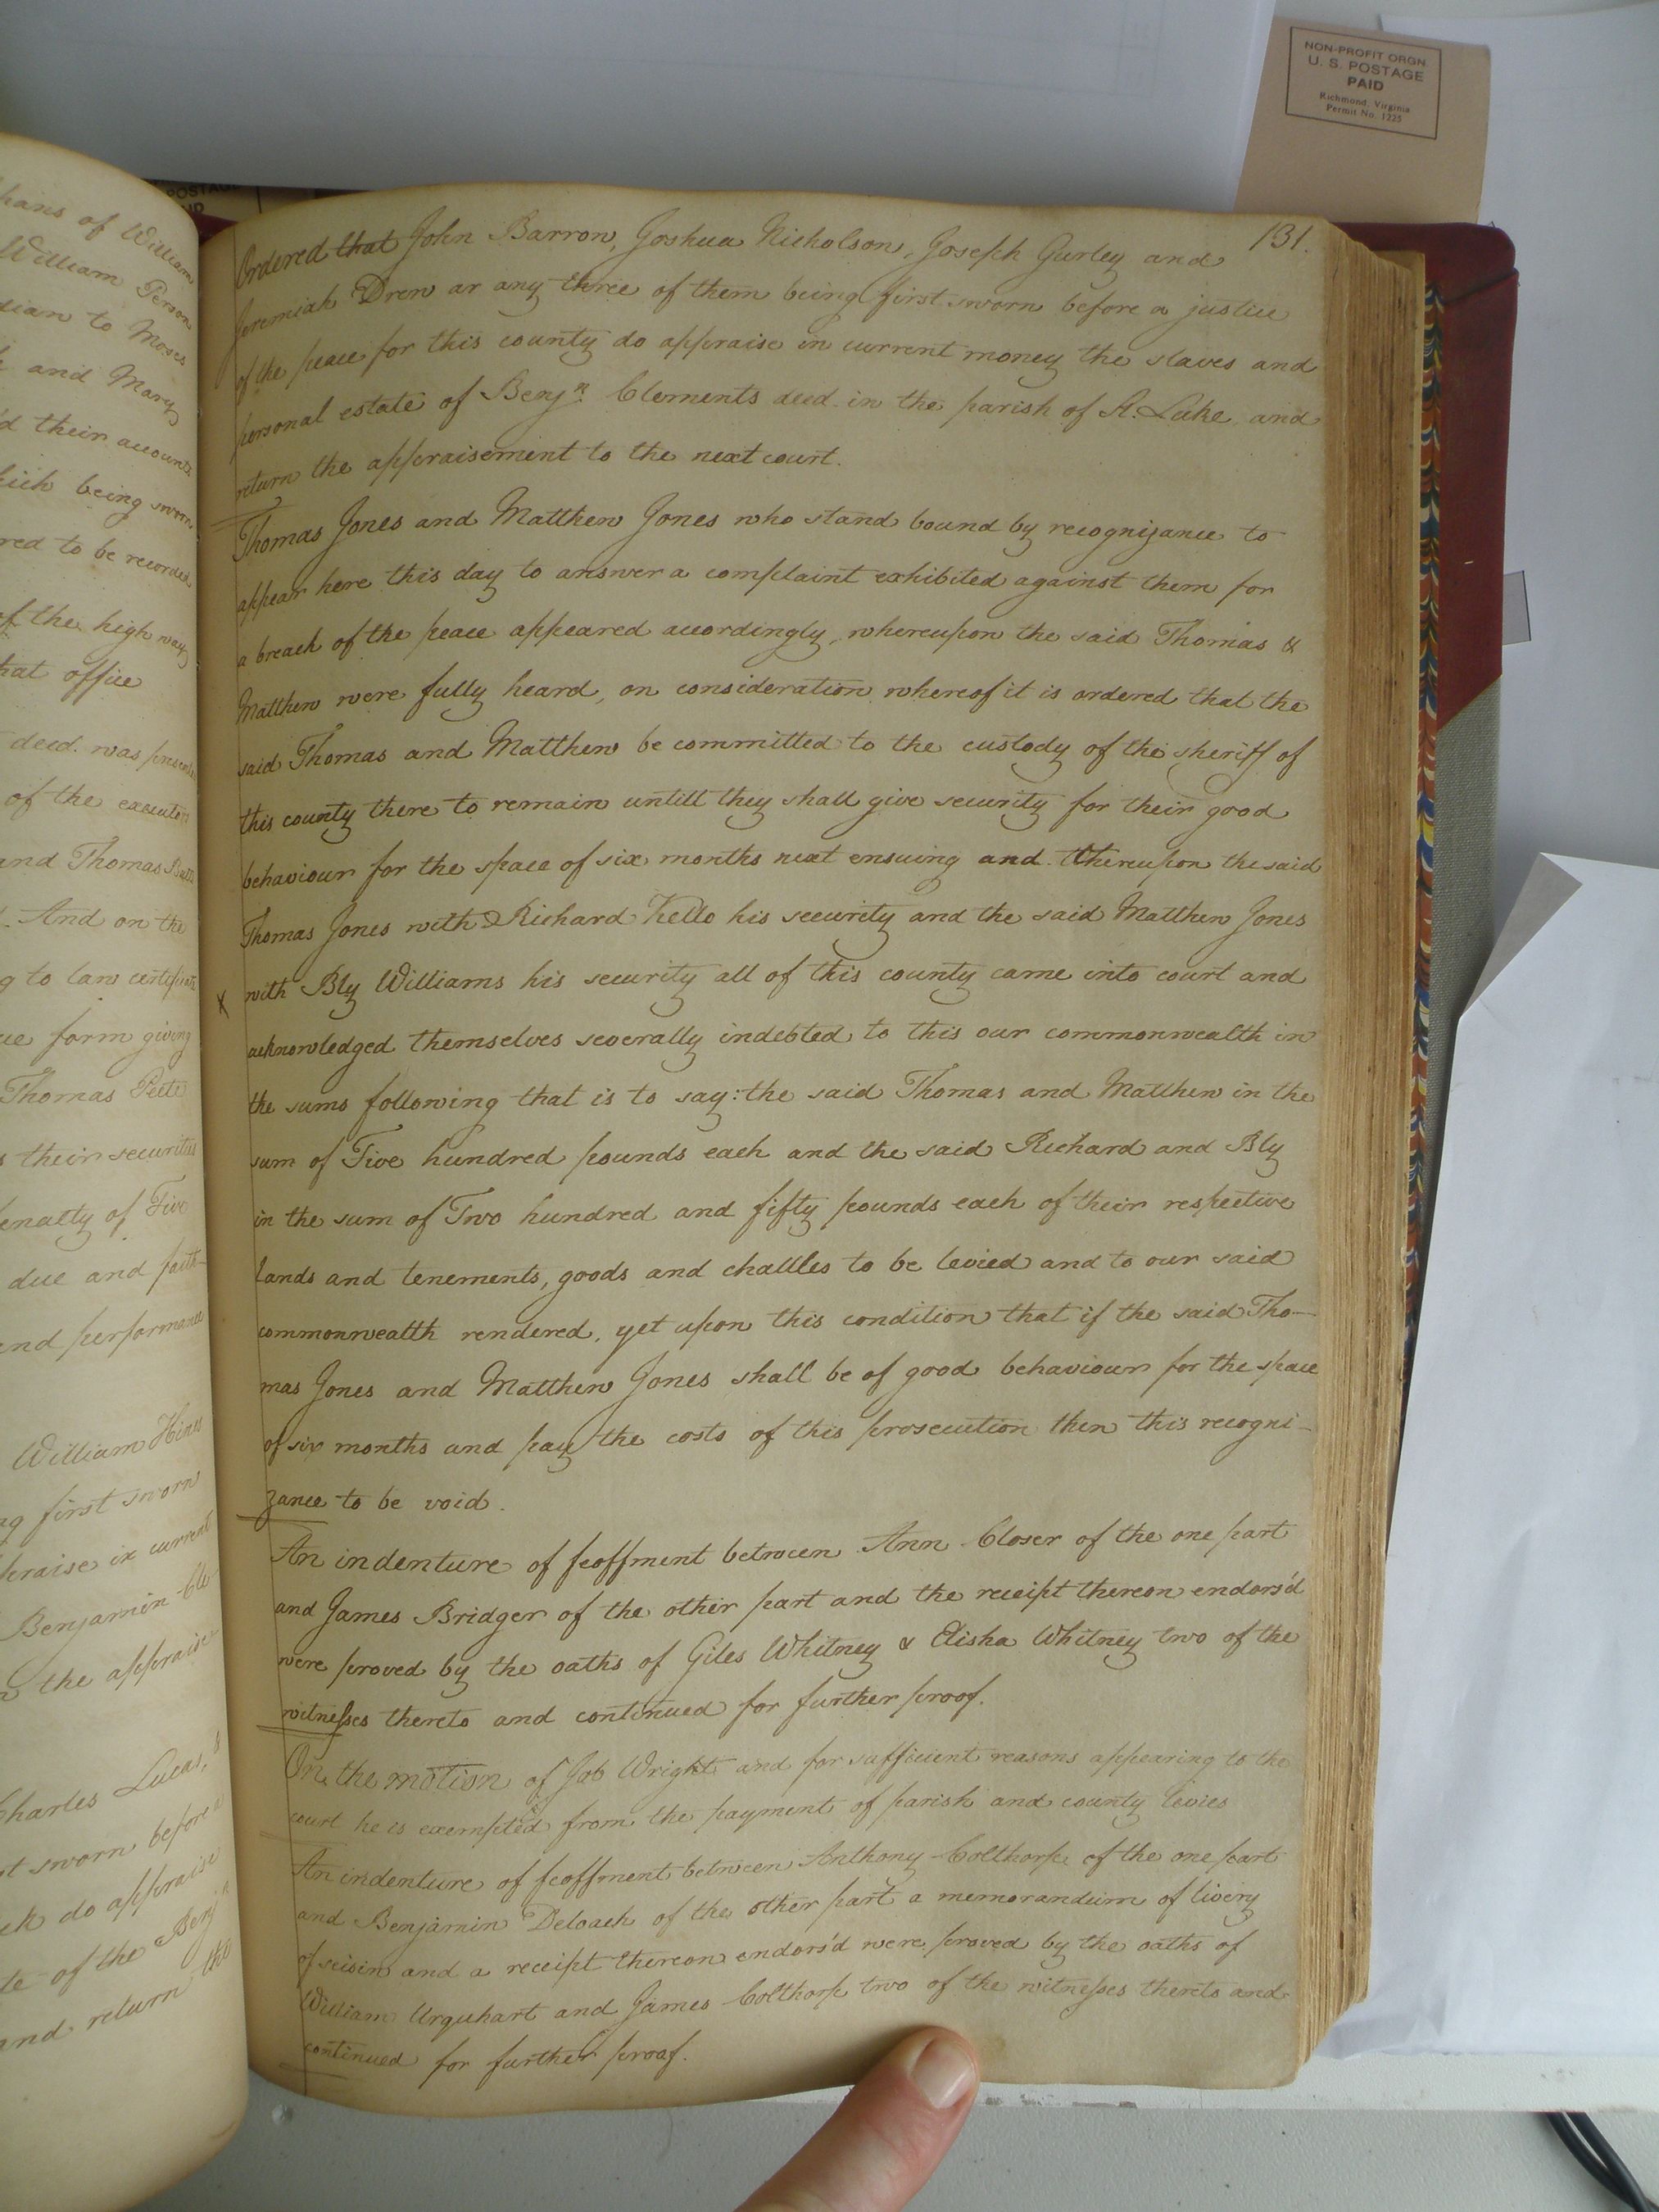 NON-PROFIT ORGN
U. S. POSTAGE
PAID
Richmond, Virginia
Permit No. 1225
POSTAGE
131.
Ordered that John Barron, Joshua Nicholson, Joseph Gurley and
Jeremiah Drew ar any three of them being first sworn before a justice
of the peace for this county do appraise in current money the slaves and
personal estate of Benjn. Clements decd. in the parish of St. Luke and
return the appraisement to the next court.
Thomas Jones and Matthew Jones who stand bound by recognizance to
appear here this day to answer a complaint exhibited against them for
a breach of the peace appeared accordingly, whereupon the said Thomas &
Matthew were fully heard, on consideration whereof it is ordered that the
said Thomas and Matthew be committed to the custody of the sheriff of
this county there to remain untill they shall give security for their good
behaviour for the space of six months next ensuing and thereupon the said
Thomas Jones with Richard Kello his security and the said Matthew Jones
x with Bly Williams his security all of this county came into court and
acknowledged themselves severally indebted to this our commonwealth in
the sums following that is to say: the said Thomas and Matthew in the
sum of Five hundred pounds each and the said Richard and Bly
in the sum of Two hundred and fifty pounds each of their respective
lands and tenements, goods and chattles to be levied and to our said
commonwealth rendered, yet upon this condition that if the said Tho-
mas Jones and Matthew Jones shall be of good behaviour for the space
of six months and pay the costs of this prosecution then this recogni-
zance to be void.
An indenture of feoffment between Ann Closer of the one part
and James Bridger of the other part and the receipt thereon endors'd
were proved by the oaths of Giles Whitney & Elisha Whitney two of the
witnesses thereto and continued for further proof.
On the motion of Job Wright and for sufficient reasons appearing to the
court he is exempted from the payment of parish and county levies
An indenture of feoffment between Anthony Colthorp of the one part
and Benjamin Deloach of the other part a memorandum of livery
of seisin and a receipt thereon endors'd were proved by the oaths of
William Urquhart and James Colthorp two of the witnesses thereto and
continued for further proof.
of William
William Person
to Moses
and Mary
their accounts
being sworn
red to be recorded
of the high way
that office
decd. was
of the executor
and Thomas
And on the
to law
form giving
Thomas Peete
their securities
of Five
due and faith-
and performance
William Hines
first sworn
in current
Benjamin Cle-
the appraise
Charles Lucas,
sworn before
do appraise
of the Benj
and return the